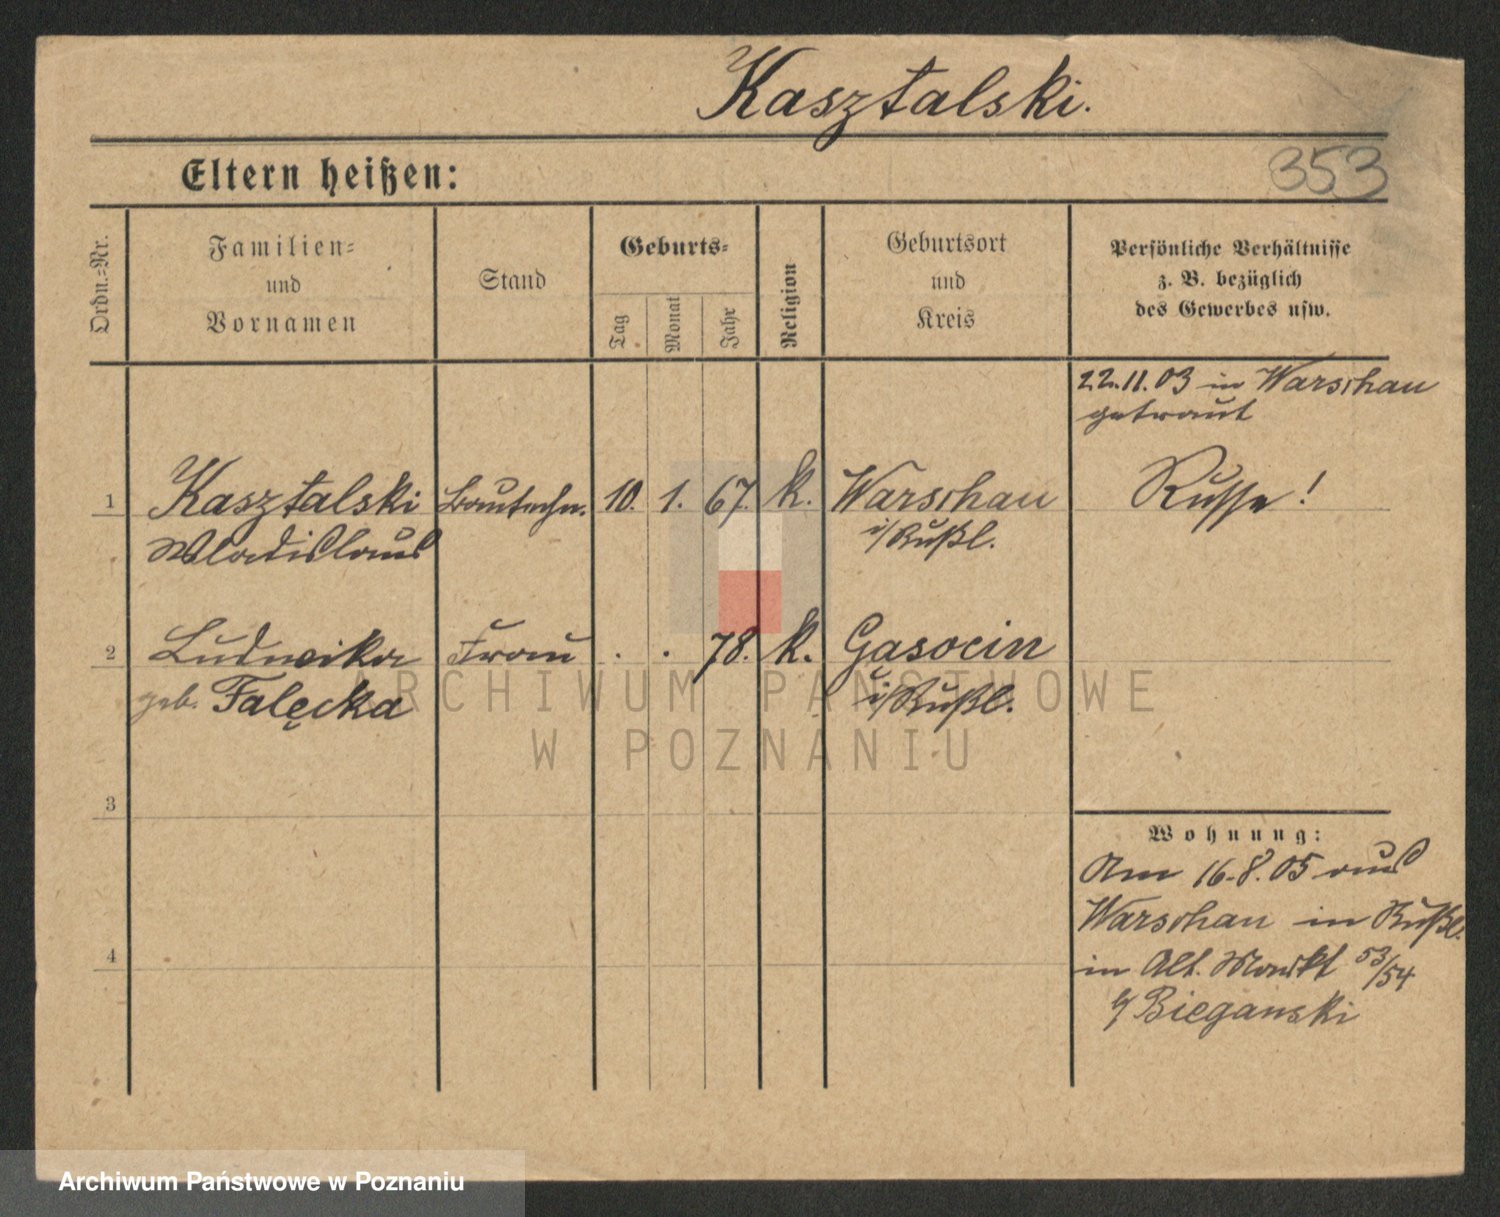 Kasztalski.
353
Eltern heißen:
Ordn.-Nr.
Familien-
und
Vornamen
Stand
Geburts-
Tag
Monat
Jahr
Religion
Geburtsort
und
Kreis
Persönliche Verhältnisse
z. B. bezüglich
des Gewerbes usw.
22.11.03 in Warschau
getraut
1 Kasztalski Bautechn. 10. 1. 67. k. Warschau Russe!
Wladislaus i/Rußl.
2 Ludwika Frau . . 78. k. Gasocin
geb. Falęcka i/Rußl.
3
4
Wohnung:
Am 16.8.05 aus
Warschau in Rußl.
in Alt. Markt 53/54
b/ Bieganski
ARCHIWUM PAŃSTWOWE
W POZNANIU
Archiwum Państwowe w Poznaniu